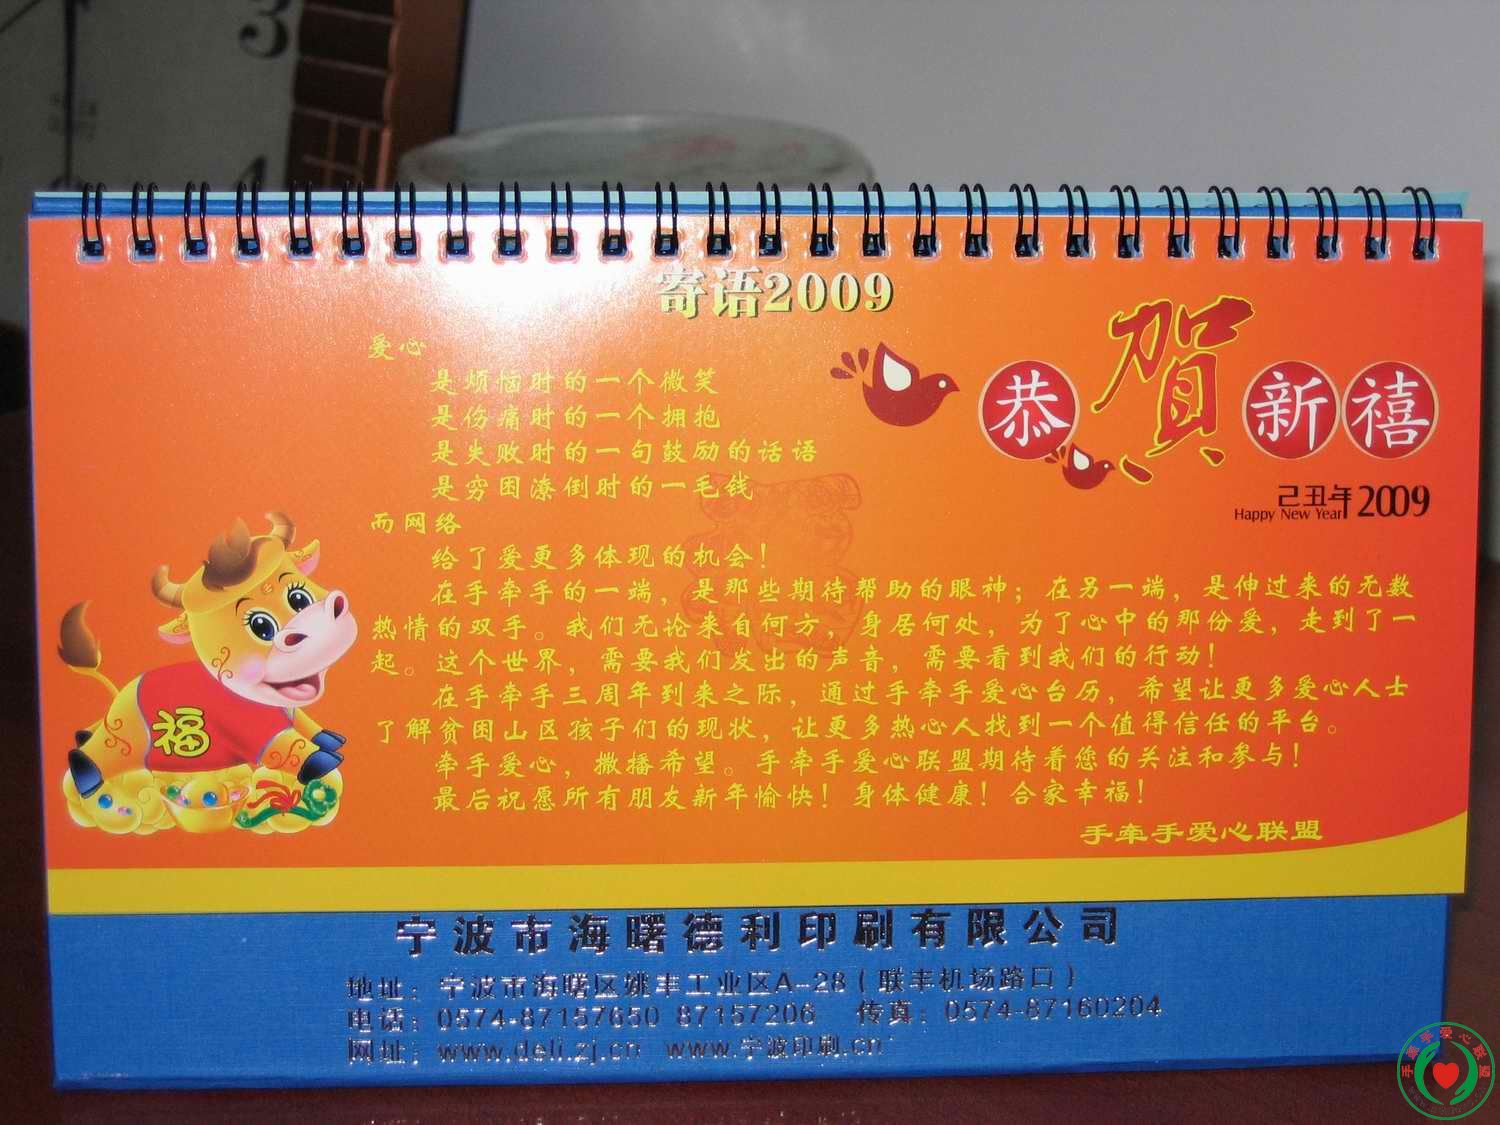 寄语2009
爱心
是烦恼时的一个微笑
是伤痛时的一个拥抱
是失败时的一句鼓励的话语
是穷困潦倒时的一毛钱
而网络
给了爱更多体现的机会！
在手牵手的一端，是那些期待帮助的眼神；在另一端，是伸过来的无数
热情的双手。我们无论来自何方，身居何处，为了心中的那份爱，走到了一
起。这个世界，需要我们发出的声音，需要看到我们的行动！
在手牵手三周年到来之际，通过手牵手爱心台历，希望让更多爱心人士
了解贫困山区孩子们的现状，让更多热心人找到一个值得信任的平台。
牵手爱心，撒播希望。手牵手爱心联盟期待着您的关注和参与！
最后祝愿所有朋友新年愉快！身体健康！合家幸福！
手牵手爱心联盟
恭贺新禧
己丑年 2009
Happy New Year
福
宁波市海曙德利印刷有限公司
地址：宁波市海曙区姚丰工业区A-28（联丰机场路口）
电话：0574-87157650 87157206 传真：0574-87160204
网址：www.deli.zj.cn www.宁波印刷.cn
3
4
手牵手爱心联盟